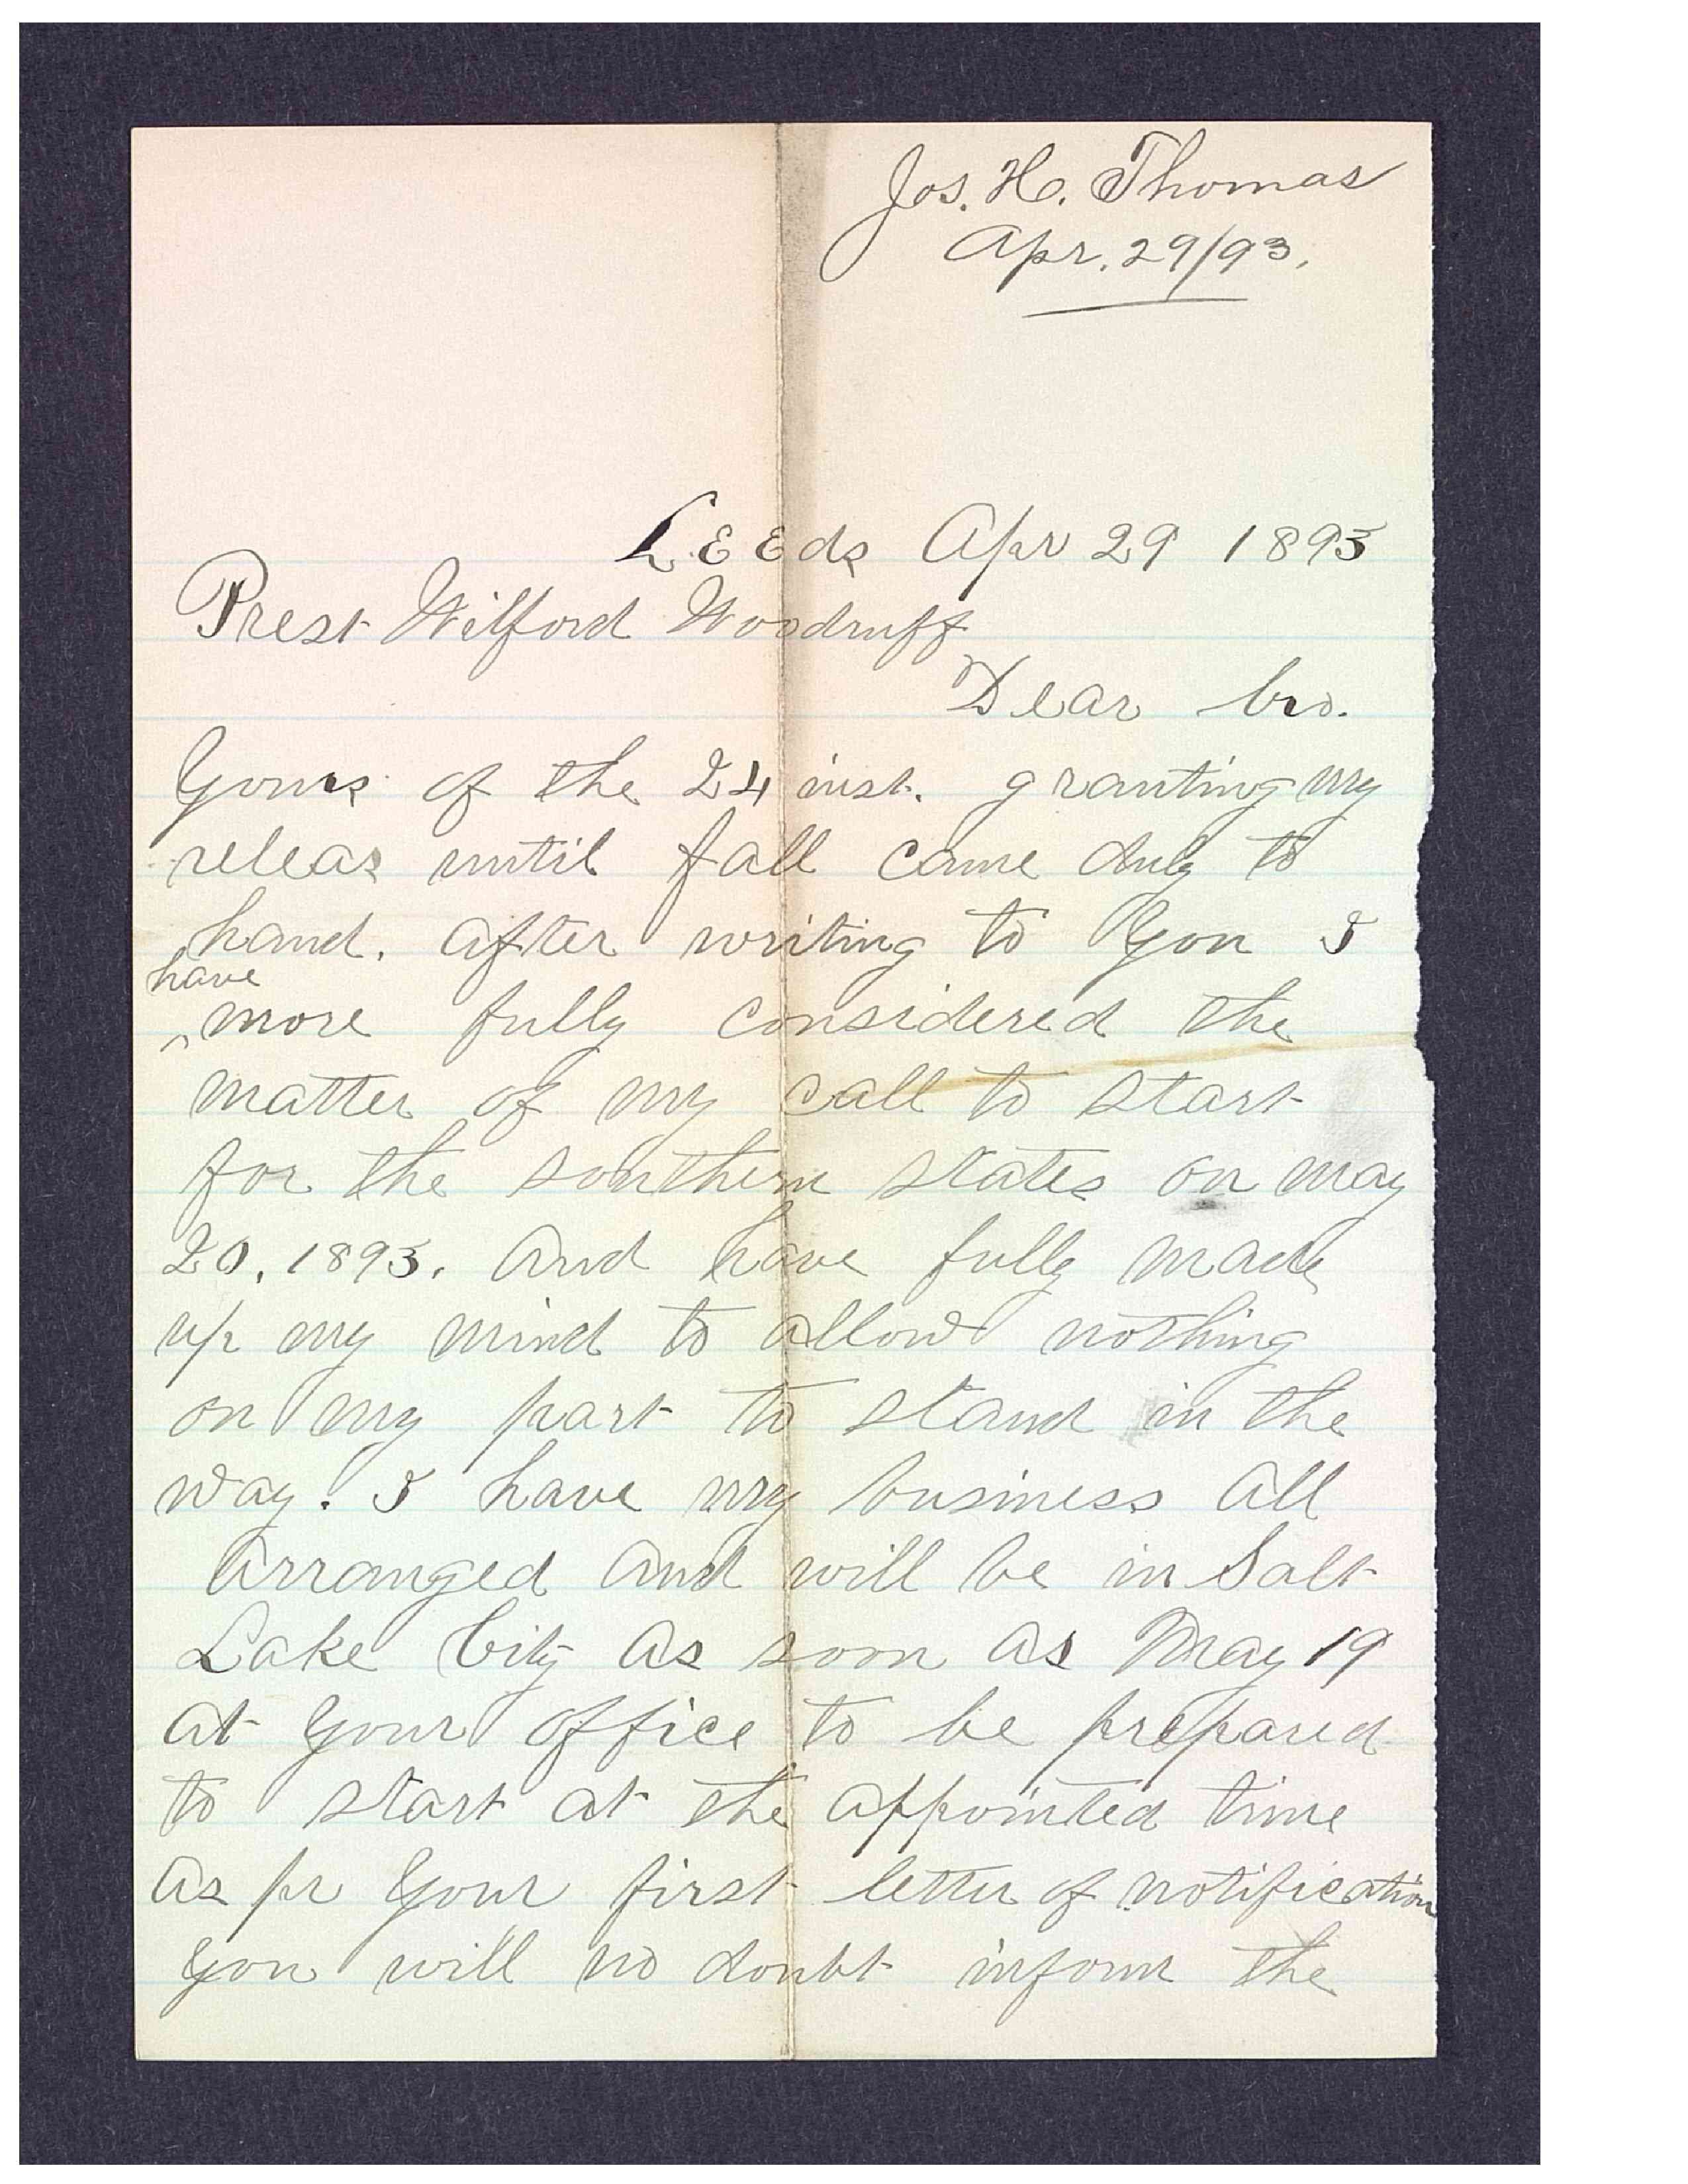 Jos. H. Thomas
Apr. 29/93.
LEEds Apr 29 1893
Prest Wilford Woodruff
Dear bro.
Yours of the 24 inst. granting my
releas until fall came duly to
hand. after writing to you I
have
^more fully considered the
matter of my call to start
for the southern states on may
20, 1893. And have fully made
up my mind to allow nothing
on my part to stand in the
way. I have my business all
arranged and will be in Salt
Lake City as soon as May 19
at your office to be prepared
to start at the appointed time
as pr your first letter of notification
you will no doubt inform the